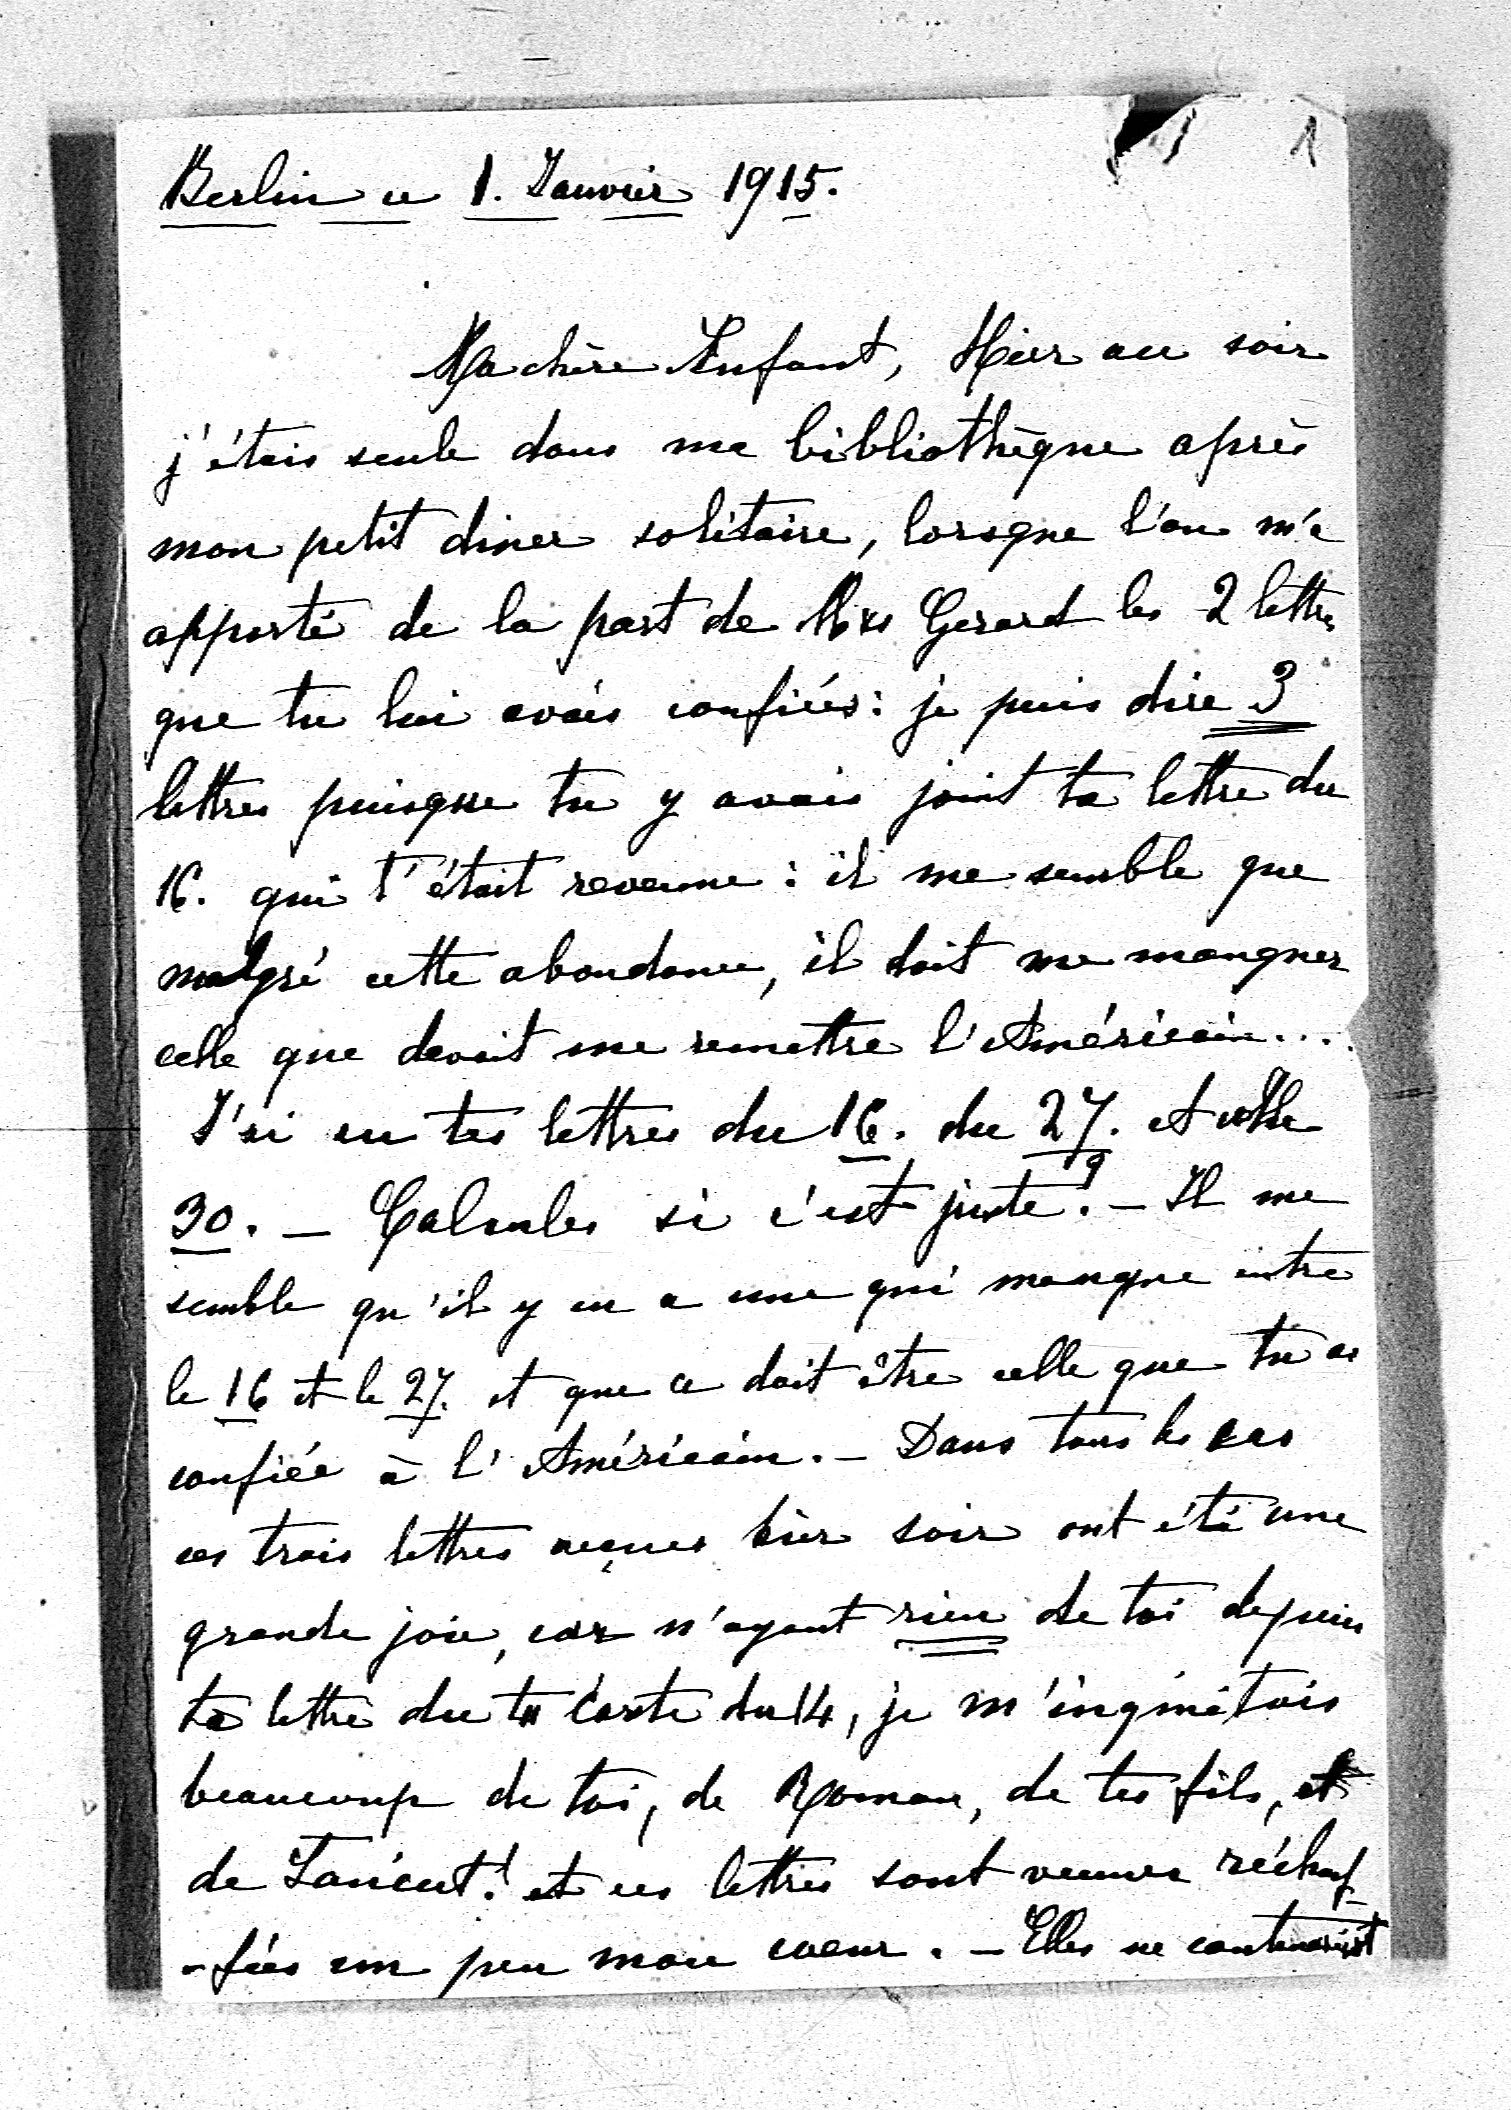 1
Berlin ce 1. Janvier 1915.
Ma chère Enfant, Hier au soir
j'étais seule dans ma bibliothèque après
mon petit diner solitaire, lorsque l'on m'a
apporté de la part de Mrs Gerard les 2 lettres
que tu lui avais confiées: je puis dire 3
lettres puisque tu y avais joint ta lettre du
16. qui t'était revenue: il me semble que
malgré cette abondance, il doit me manquer
celle que devait me remettre l'Américain....
J'ai eu tes lettres du 16. du 27. et celle
30. – Calcules si c'est juste? – Il me
semble qu'il y en a une qui manque entre
le 16 et le 27. et que ce doit être celle que tu as
confiée à l'Américain. – Dans tous les cas
ces trois lettres reçues hier soir ont été une
grande joie, car n'ayant rien de toi depuis
ta lettre du ta carte du 14, je m'inquiétais
beaucoup de toi, de Roman, de tes fils, et
de Lancut! et ces lettres sont venues réchauf-
-fées un peu mon coeur. – Elles ne contenaient